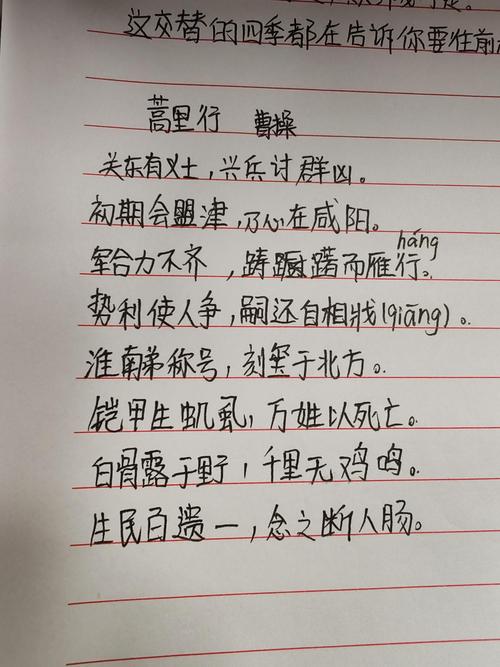 这交替的四季都在告诉你要往前
蒿里行 曹操
关东有义士，兴兵讨群凶。
初期会盟津，乃心在咸阳。
háng
军合力不齐，踌蹰躇而雁行。
势利使人争，嗣还自相戕(qiāng)。
淮南弟称号，刻玺于北方。
铠甲生虮虱，万姓以死亡。
白骨露于野，千里无鸡鸣。
生民百遗一，念之断人肠。